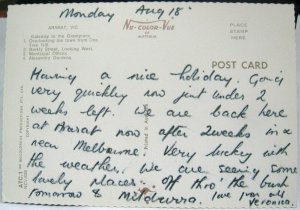 Monday Aug 18
ARARAT, VIC.
Gateway to the Grampians.
1. Overlooking the town from One Tree Hill.
2. Barkly Street, Looking West.
3. Municipal Offices
4. Alexandra Gardens.
NU-COLOR-VUE
OF AUSTRALIA
PLACE
STAMP
HERE
POST CARD
Having a nice holiday. Going
very quickly now just under 2
weeks left. We are back here
at Ararat now after 2 weeks in a
near Melbourne. Very lucky with
the weather. We are seeing some
lovely places. Off thro the bush
tomorrow to Mildurra. love from all
Veronica.